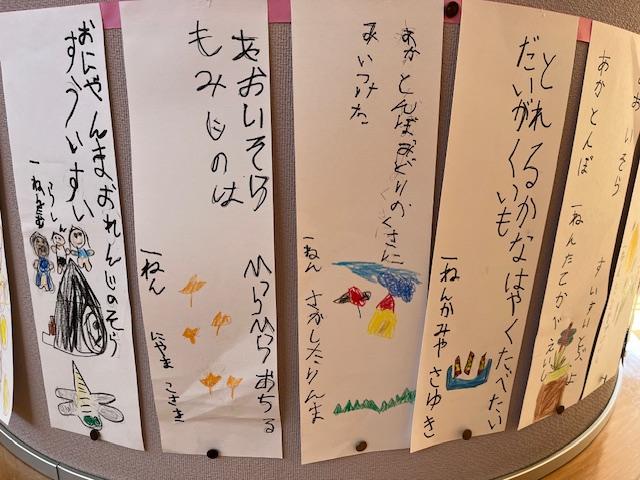 おいそら
すいすいとぶよ
あかとんぼ
とれるかなはやくたべたい
だいがくいも
一ねんかみや さゆき
あかとんぼみどりのくさに
みいつけた
一ねん さかしたりんま
あおいそら ゆらゆらおちる
もみじのは
一ねん にやま こさき
おにやんまおれんじのそら
すういすい